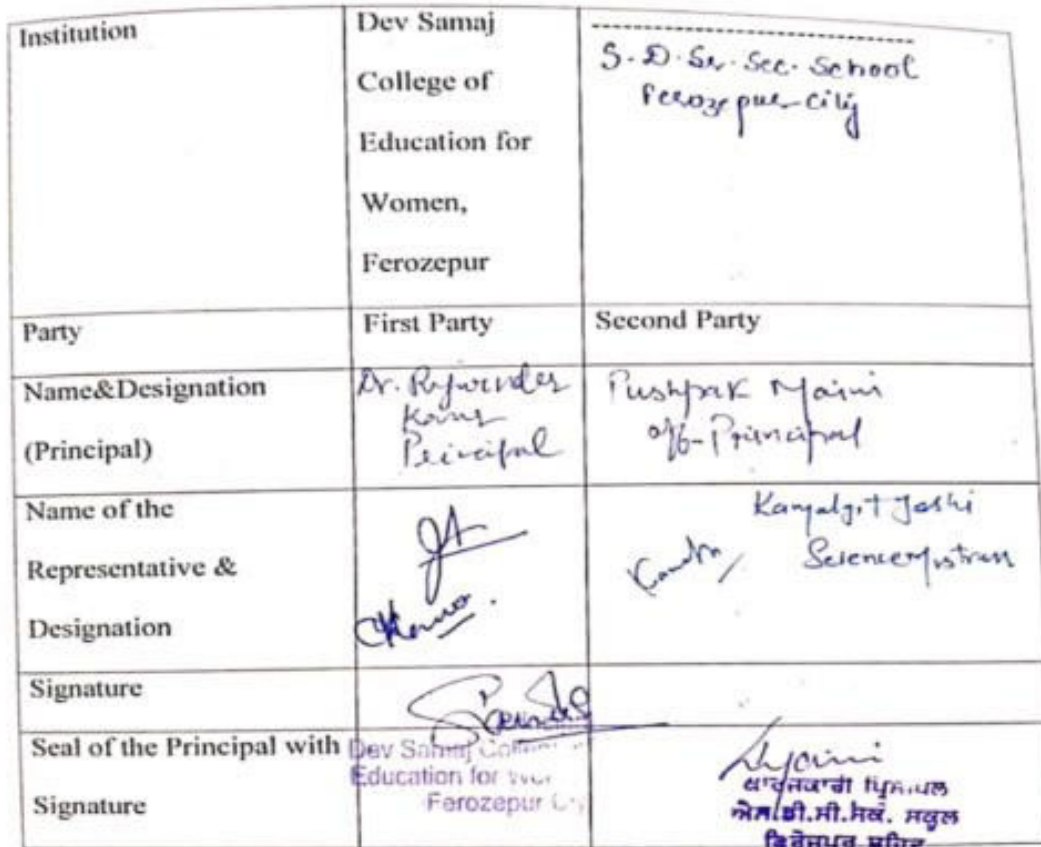 Institution
Dev Samaj
College of
Education for
Women,
Ferozepur
S.D. Sr. Sec. School
Ferozepur City
Party
First Party
Second Party
Name&Designation
(Principal)
Dr. Rajwinder
Kaur
Principal
Pushpak Maini
Principal
Name of the
Representative &
Designation
Joshi
Signature
Seal of the Principal with
Signature
Dev Samaj
Education for
Ferozepur
ਸਕੂਲ